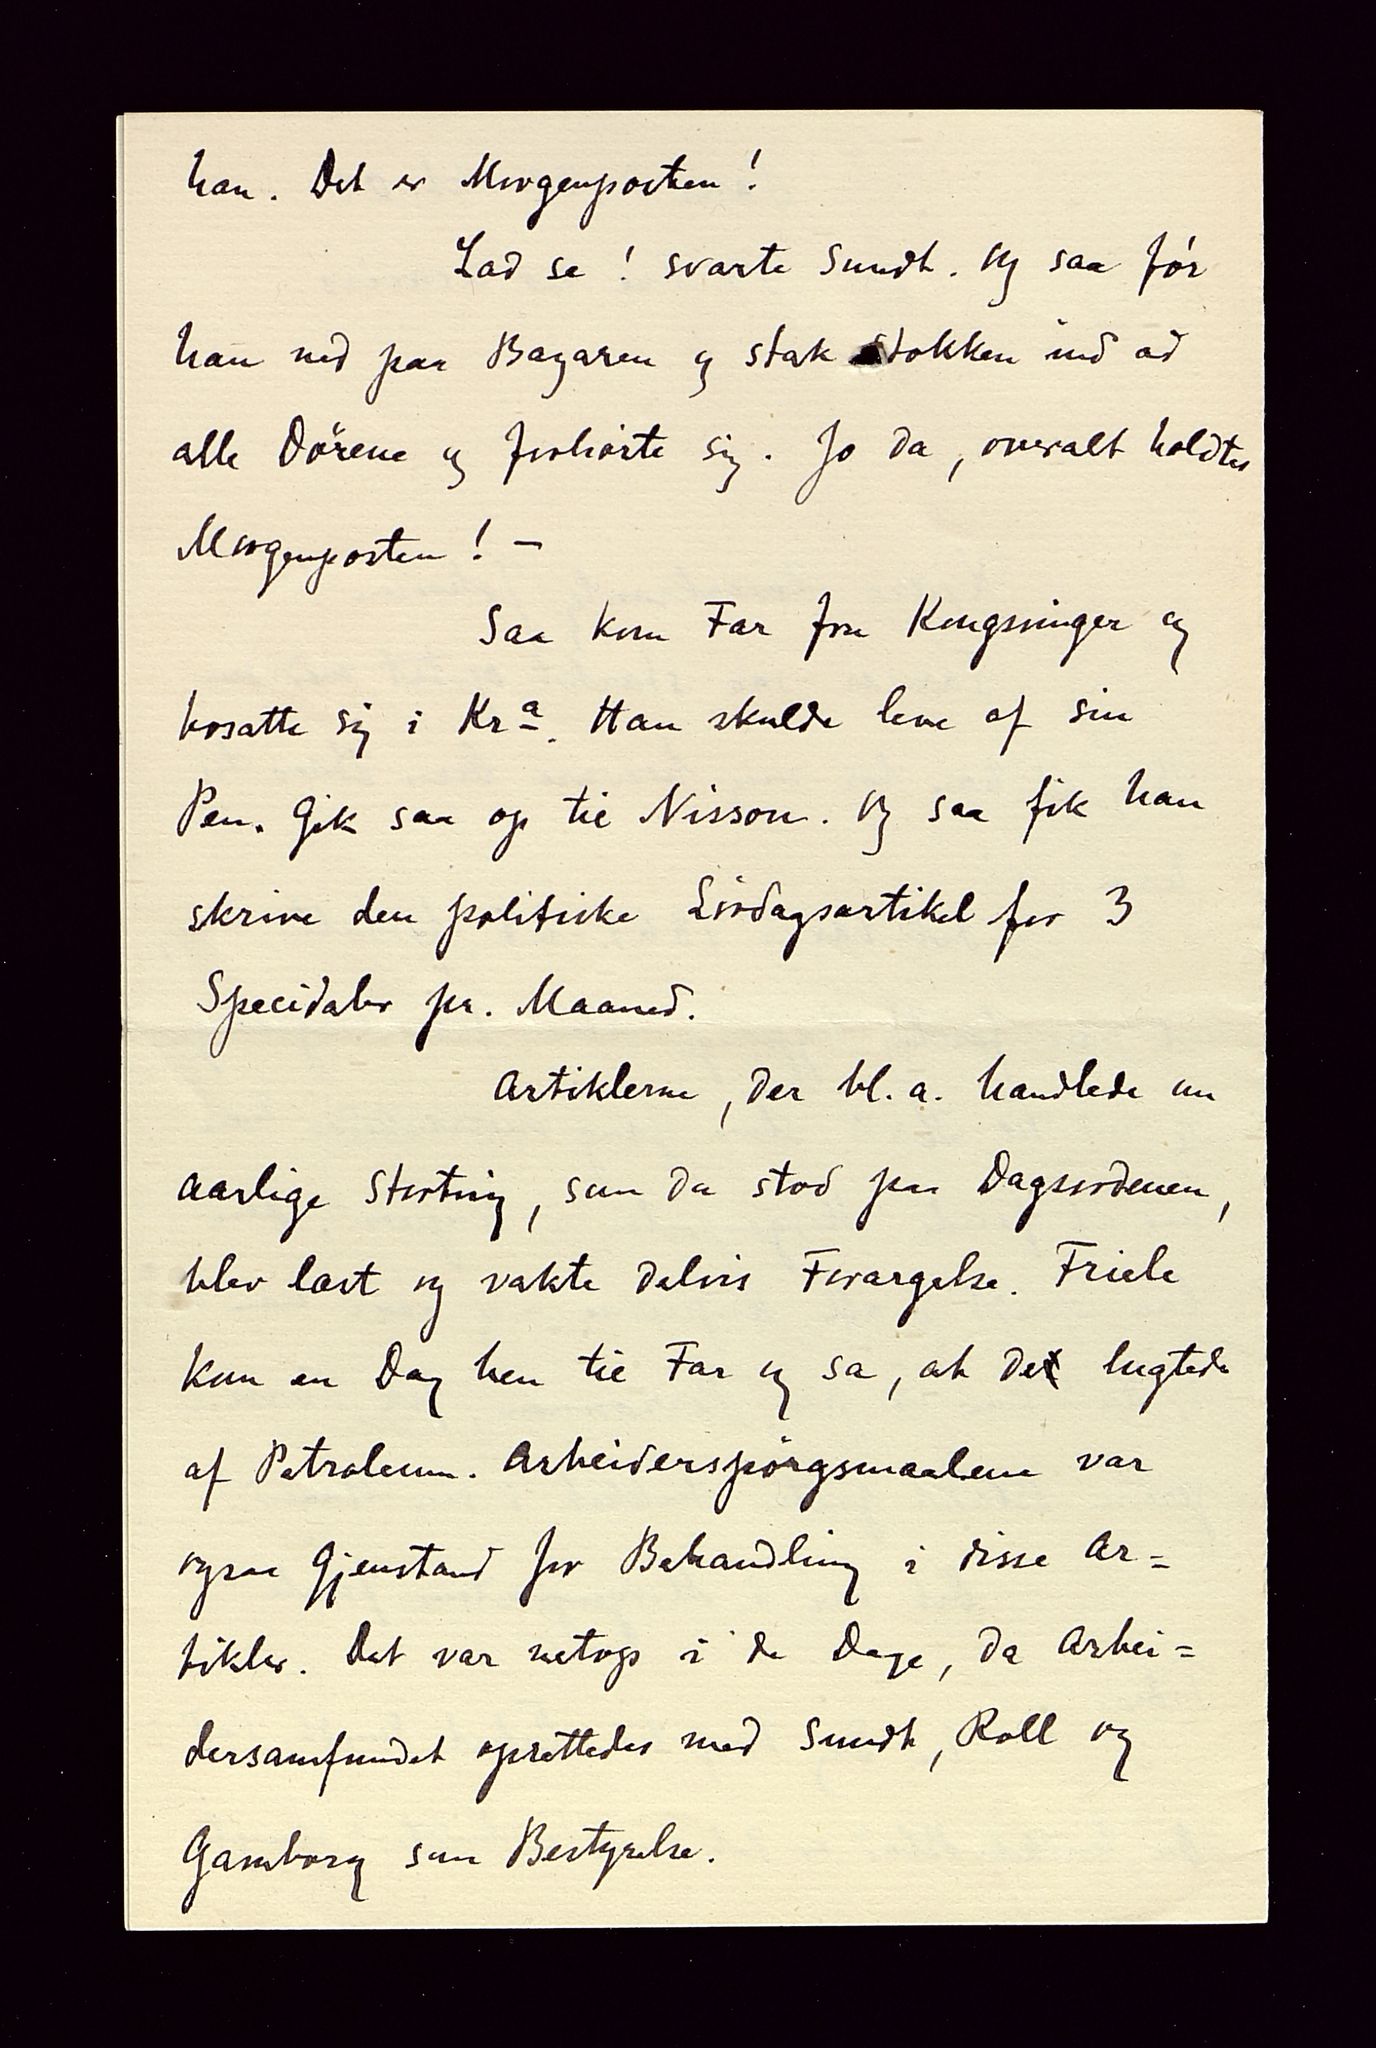 han. Det er Morgenposten!
Lad se! svarte Sundt. Og saa fór
han ned paa Bazaren og stak Stokken ind ad
alle Dörene og forhörte sig. Jo da, overalt holdtes
Morgenposten! –
Saa kom Far fra Kongsvinger og
bosatte sig i Kra. Han skulde leve af sin
Pen. Gik saa op til Nisson. Og saa fik han
skrive den politiske Lördagsartikel for 3
Specidaler pr. Maaned.
Artiklerne, der bl. a. handlede om
aarlige Storting, som da stod paa Dagsordenen,
blev læst og vakte delvis Forargelse. Friele
kom en Dag hen til Far og sa, at det lugtede
af Petroleum. Arbeiderspörgsmaalene var
ogsaa Gjenstand for Behandling i disse Ar=
tikler. Det var netop i de Dage, da Arbei=
dersamfundet oprettedes med Sundt, Roll og
Gamborg som Bestyrelse.